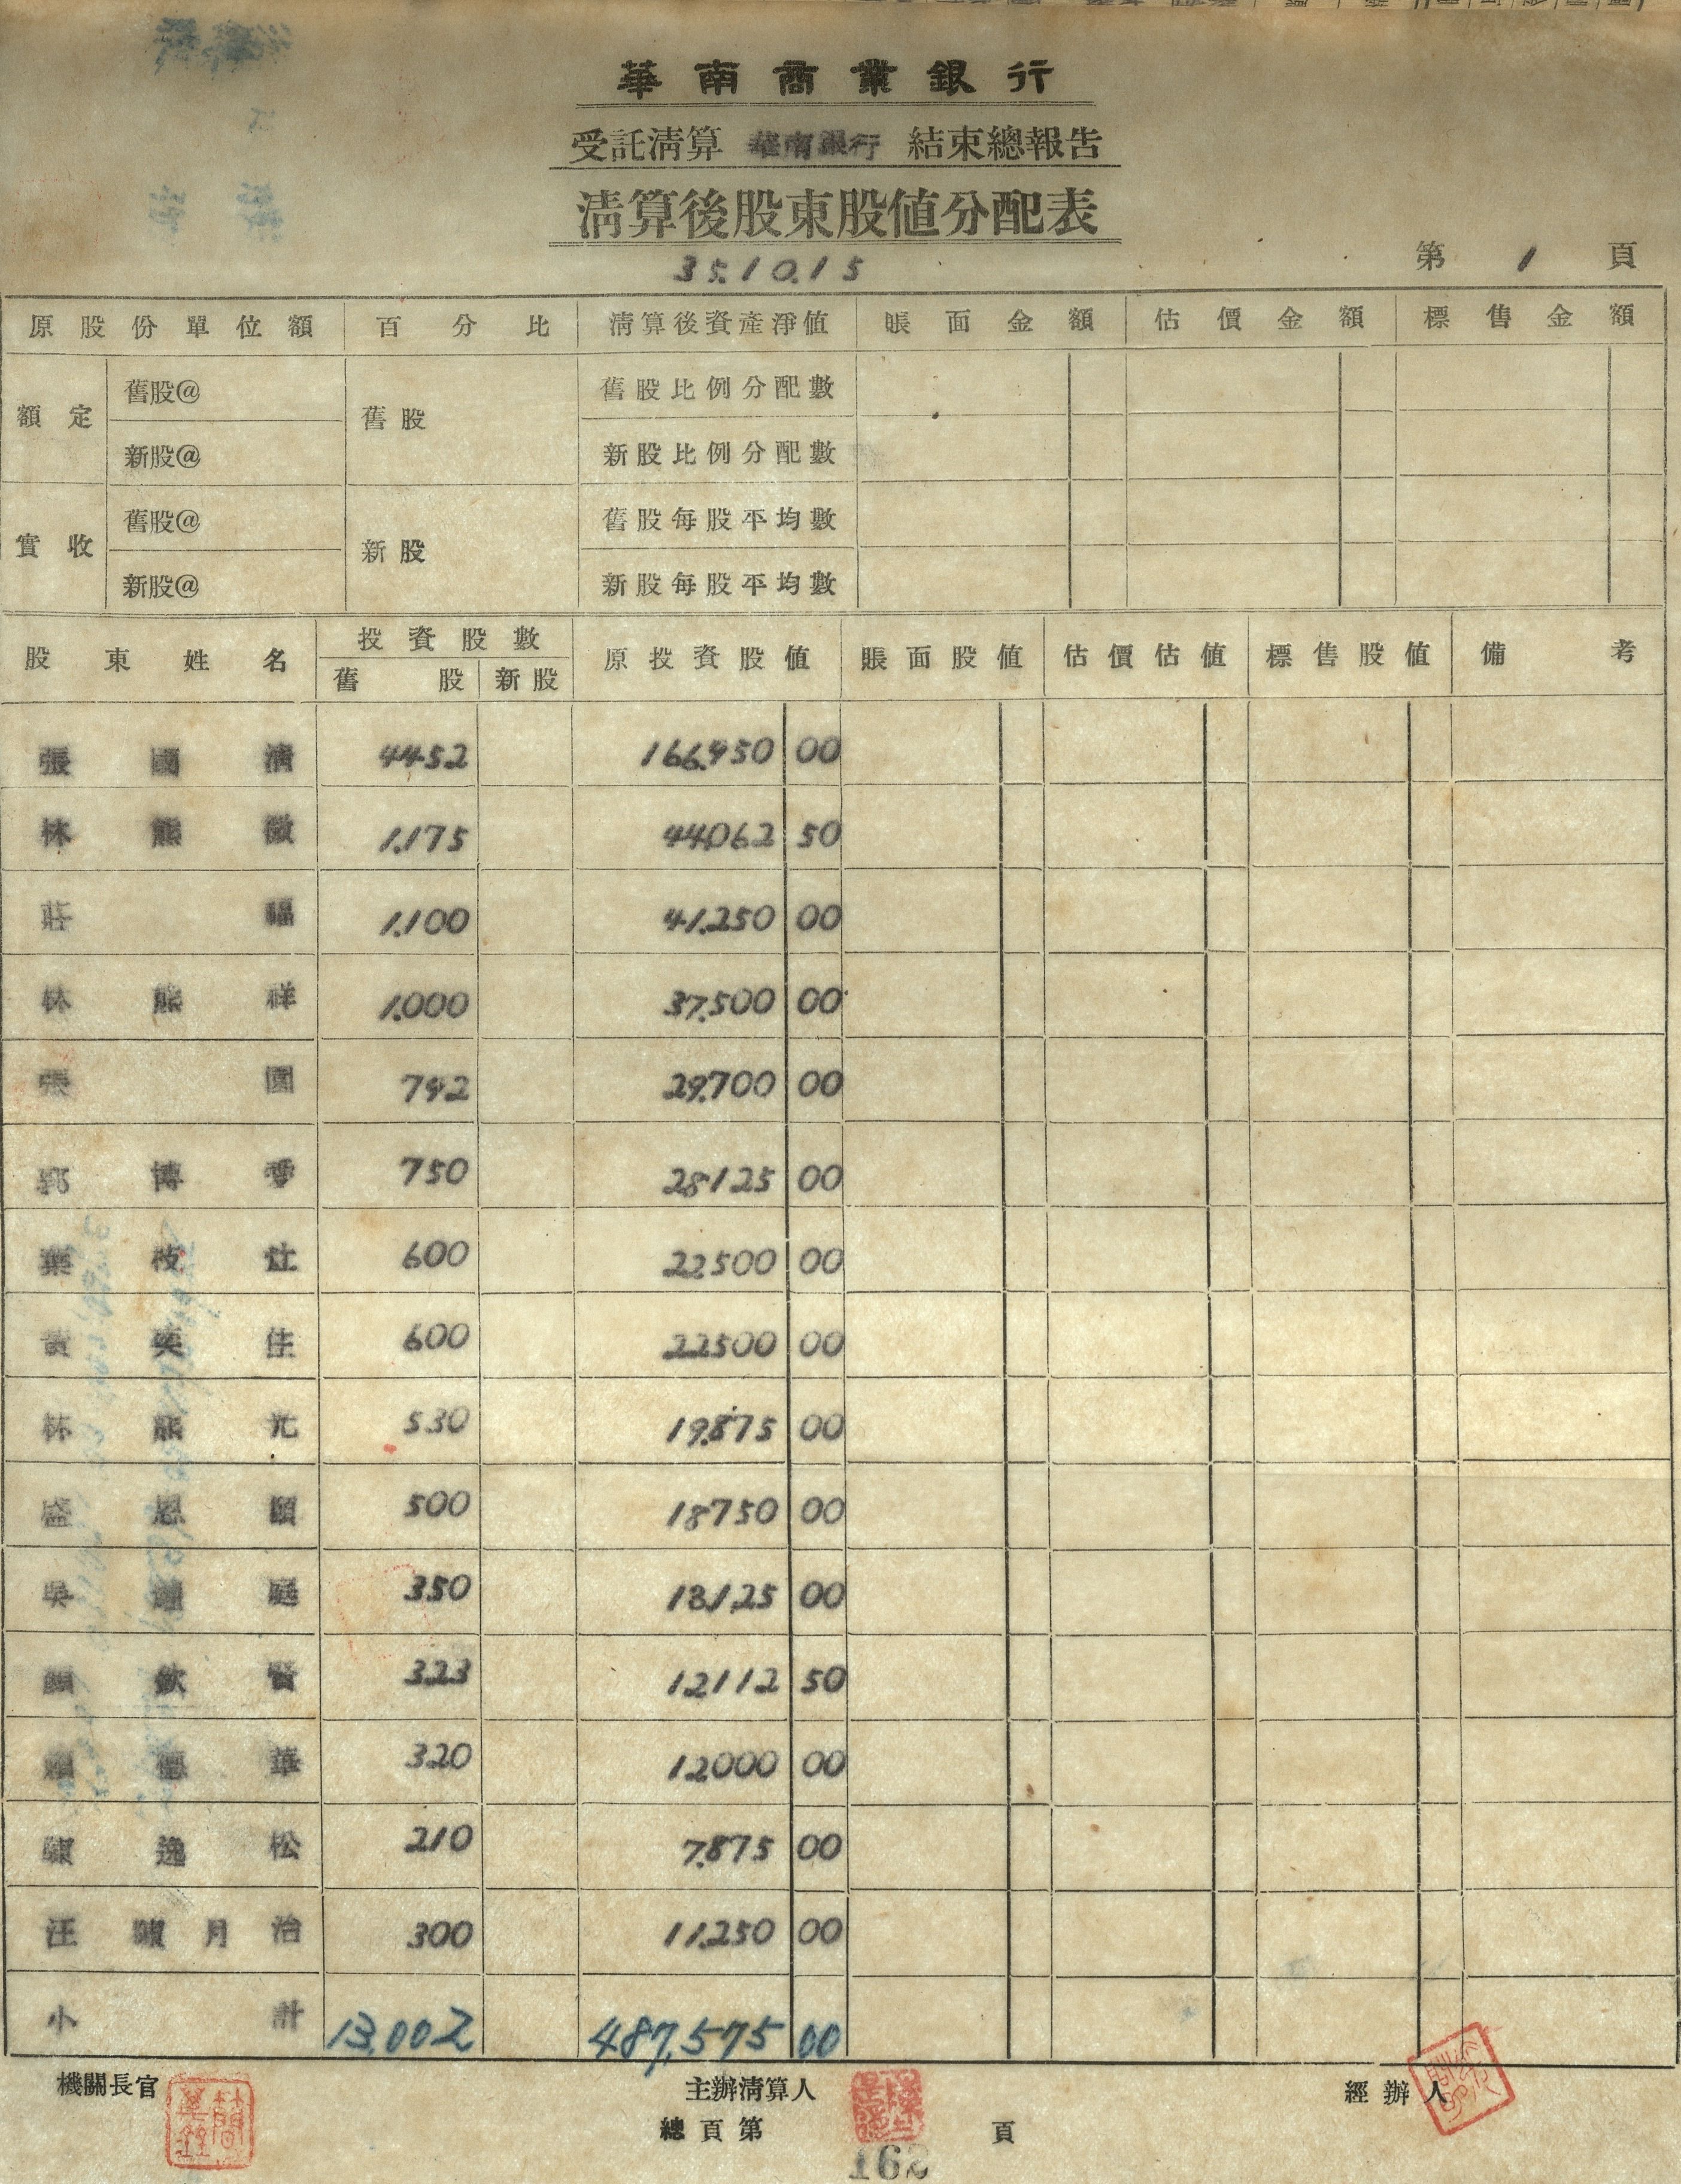 華南商業銀行
受託清算 華南銀行 結束總報告
清算後股東股值分配表
35.10.15
第 1 頁
原股份單位額 百分比 清算後資產淨值 賬面金額 估價金額 標售金額
額定 舊股@ 舊股 舊股比例分配數
新股@ 新股比例分配數
實收 舊股@ 新股 舊股每股平均數
新股@ 新股每股平均數
股東姓名 投資股數 原投資股值 賬面股值 估價估值 標售股值 備考
舊股 新股
張國清 4452 166,950 00
林熊徵 1.175 44,062 50
莊福 1.100 41.250 00
林熊祥 1.000 37.500 00
張園 792 29.700 00
郭博 750 28125 00
葉枝 600 22500 00
黃奕佳 600 22500 00
林熊光 530 19.875 00
盛恩頤 500 18750 00
吳庭 350 13.125 00
顏欽賢 323 12112 50
德華 320 12000 00
陳逸松 210 7.875 00
汪陳月治 300 11.250 00
小計 13,002 487,575 00
機關長官 主辦清算人 經辦人
總頁第 頁
162